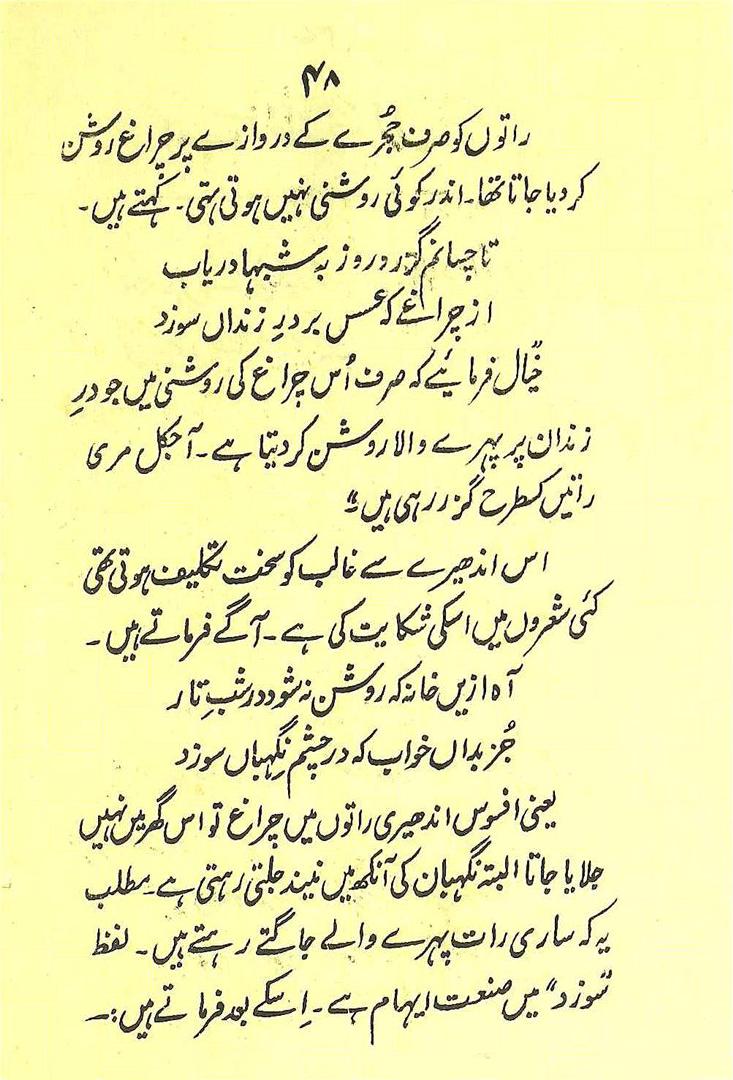 ۴۸
راتوں کو صرف حُجرے کے دروازے پر چراغ روشن
کردیا جاتا تھا۔ اندر کوئی روشنی نہیں ہوتی تھی۔ کہتے ہیں۔
تا چسانم گزرد روز بہ شبہا دریاب
از چراغے کہ عسس بر درِ زنداں سوزد
خیال فرمایئے کہ صرف اُس چراغ کی روشنی میں جو درِ
زندان پر پہرے والا روشن کر دیتا ہے۔ آجکل مری
راتیں کسطرح گزر رہی ہیں"
اس اندھیرے سے غالب کو سخت تکلیف ہوتی تھی
کئی شعروں میں اسکی شکایت کی ہے۔ آگے فرماتے ہیں۔
آہ ازیں خانہ کہ روشن نہ شود در شبِ تار
جُز بداں خواب کہ در چشمِ نگہباں سوزد
یعنی افسوس اندھیری راتوں میں چراغ تو اس گھر میں نہیں
جلایا جاتا البتہ نگہبان کی آنکھ میں نیند جلتی رہتی ہے۔ مطلب
یہ کہ ساری رات پہرے والے جاگتے رہتے ہیں۔ لفظ
"سوزد" میں صنعت ایہام ہے۔ اِسکے بعد فرماتے ہیں:۔